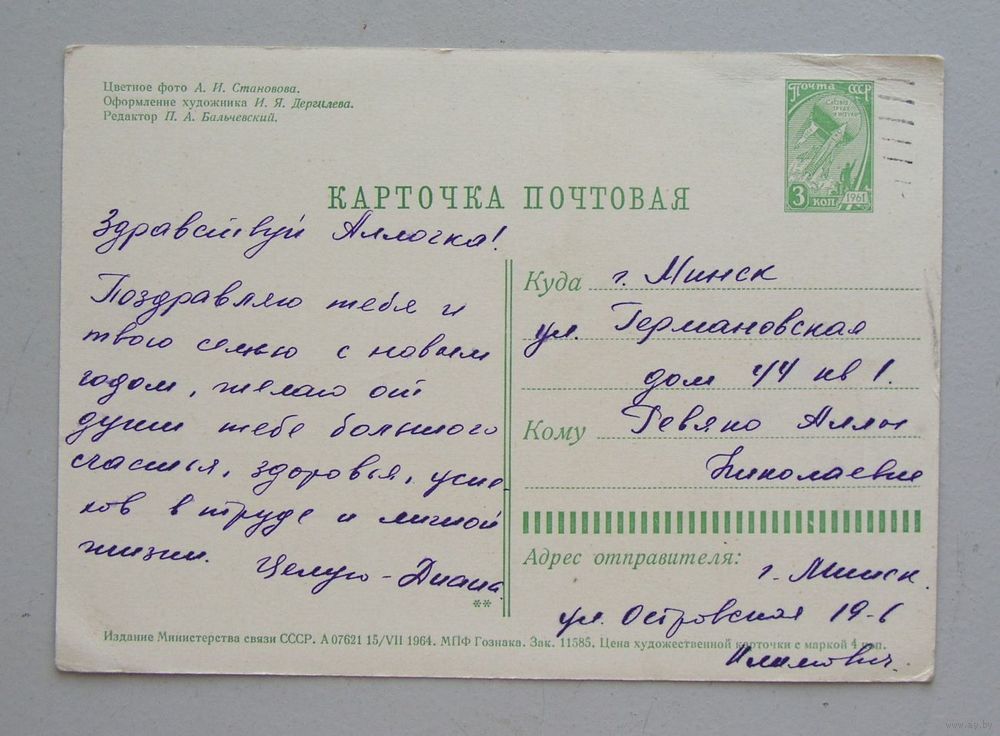 Цветное фото А. И. Становова.
Оформление художника И. Я. Дергилева.
Редактор П. А. Бальчевский.
Почта СССР
3 коп
1961
КАРТОЧКА ПОЧТОВАЯ
Здравствуй Аллочка!
Поздравляю тебя и
твою семью с новым
годом, желаю от
души тебе большого
счастья, здоровья, успе
хов в труде и личной
жизни. Целую - Диана
**
Куда г. Минск
ул. Германовская
дом 44 кв 1.
Кому Ревяко Аллы
Николаевне
Адрес отправителя:
г. Минск.
ул. Островская 19-6
Издание Министерства связи СССР. А 07621 15/VII 1964. МПФ Гознака. Зак. 11585. Цена художественной карточки с маркой 4 коп.
www.ay.by